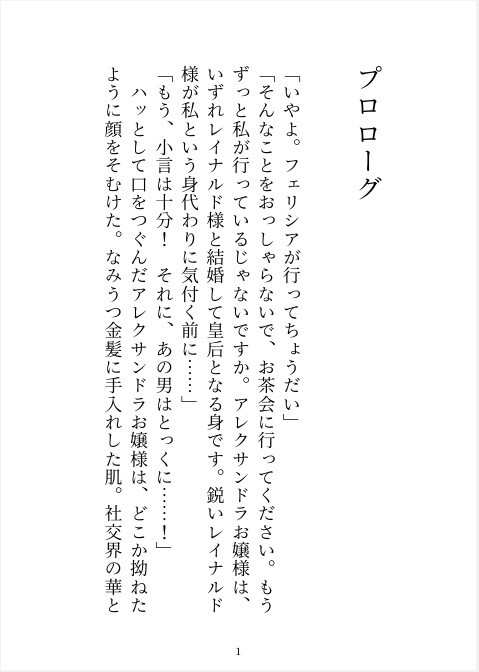 プロローグ
「いやよ。フェリシアが行ってちょうだい」
「そんなことをおっしゃらないで、お茶会に行ってください。もう
ずっと私が行っているじゃないですか。アレクサンドラお嬢様は、
いずれレイナルド様と結婚して皇后となる身です。鋭いレイナルド
様が私という身代わりに気付く前に……」
「もう、小言は十分！　それに、あの男はとっくに……！」
　ハッとして口をつぐんだアレクサンドラお嬢様は、どこか拗ねた
ように顔をそむけた。なみうつ金髪に手入れした肌。社交界の華と
1